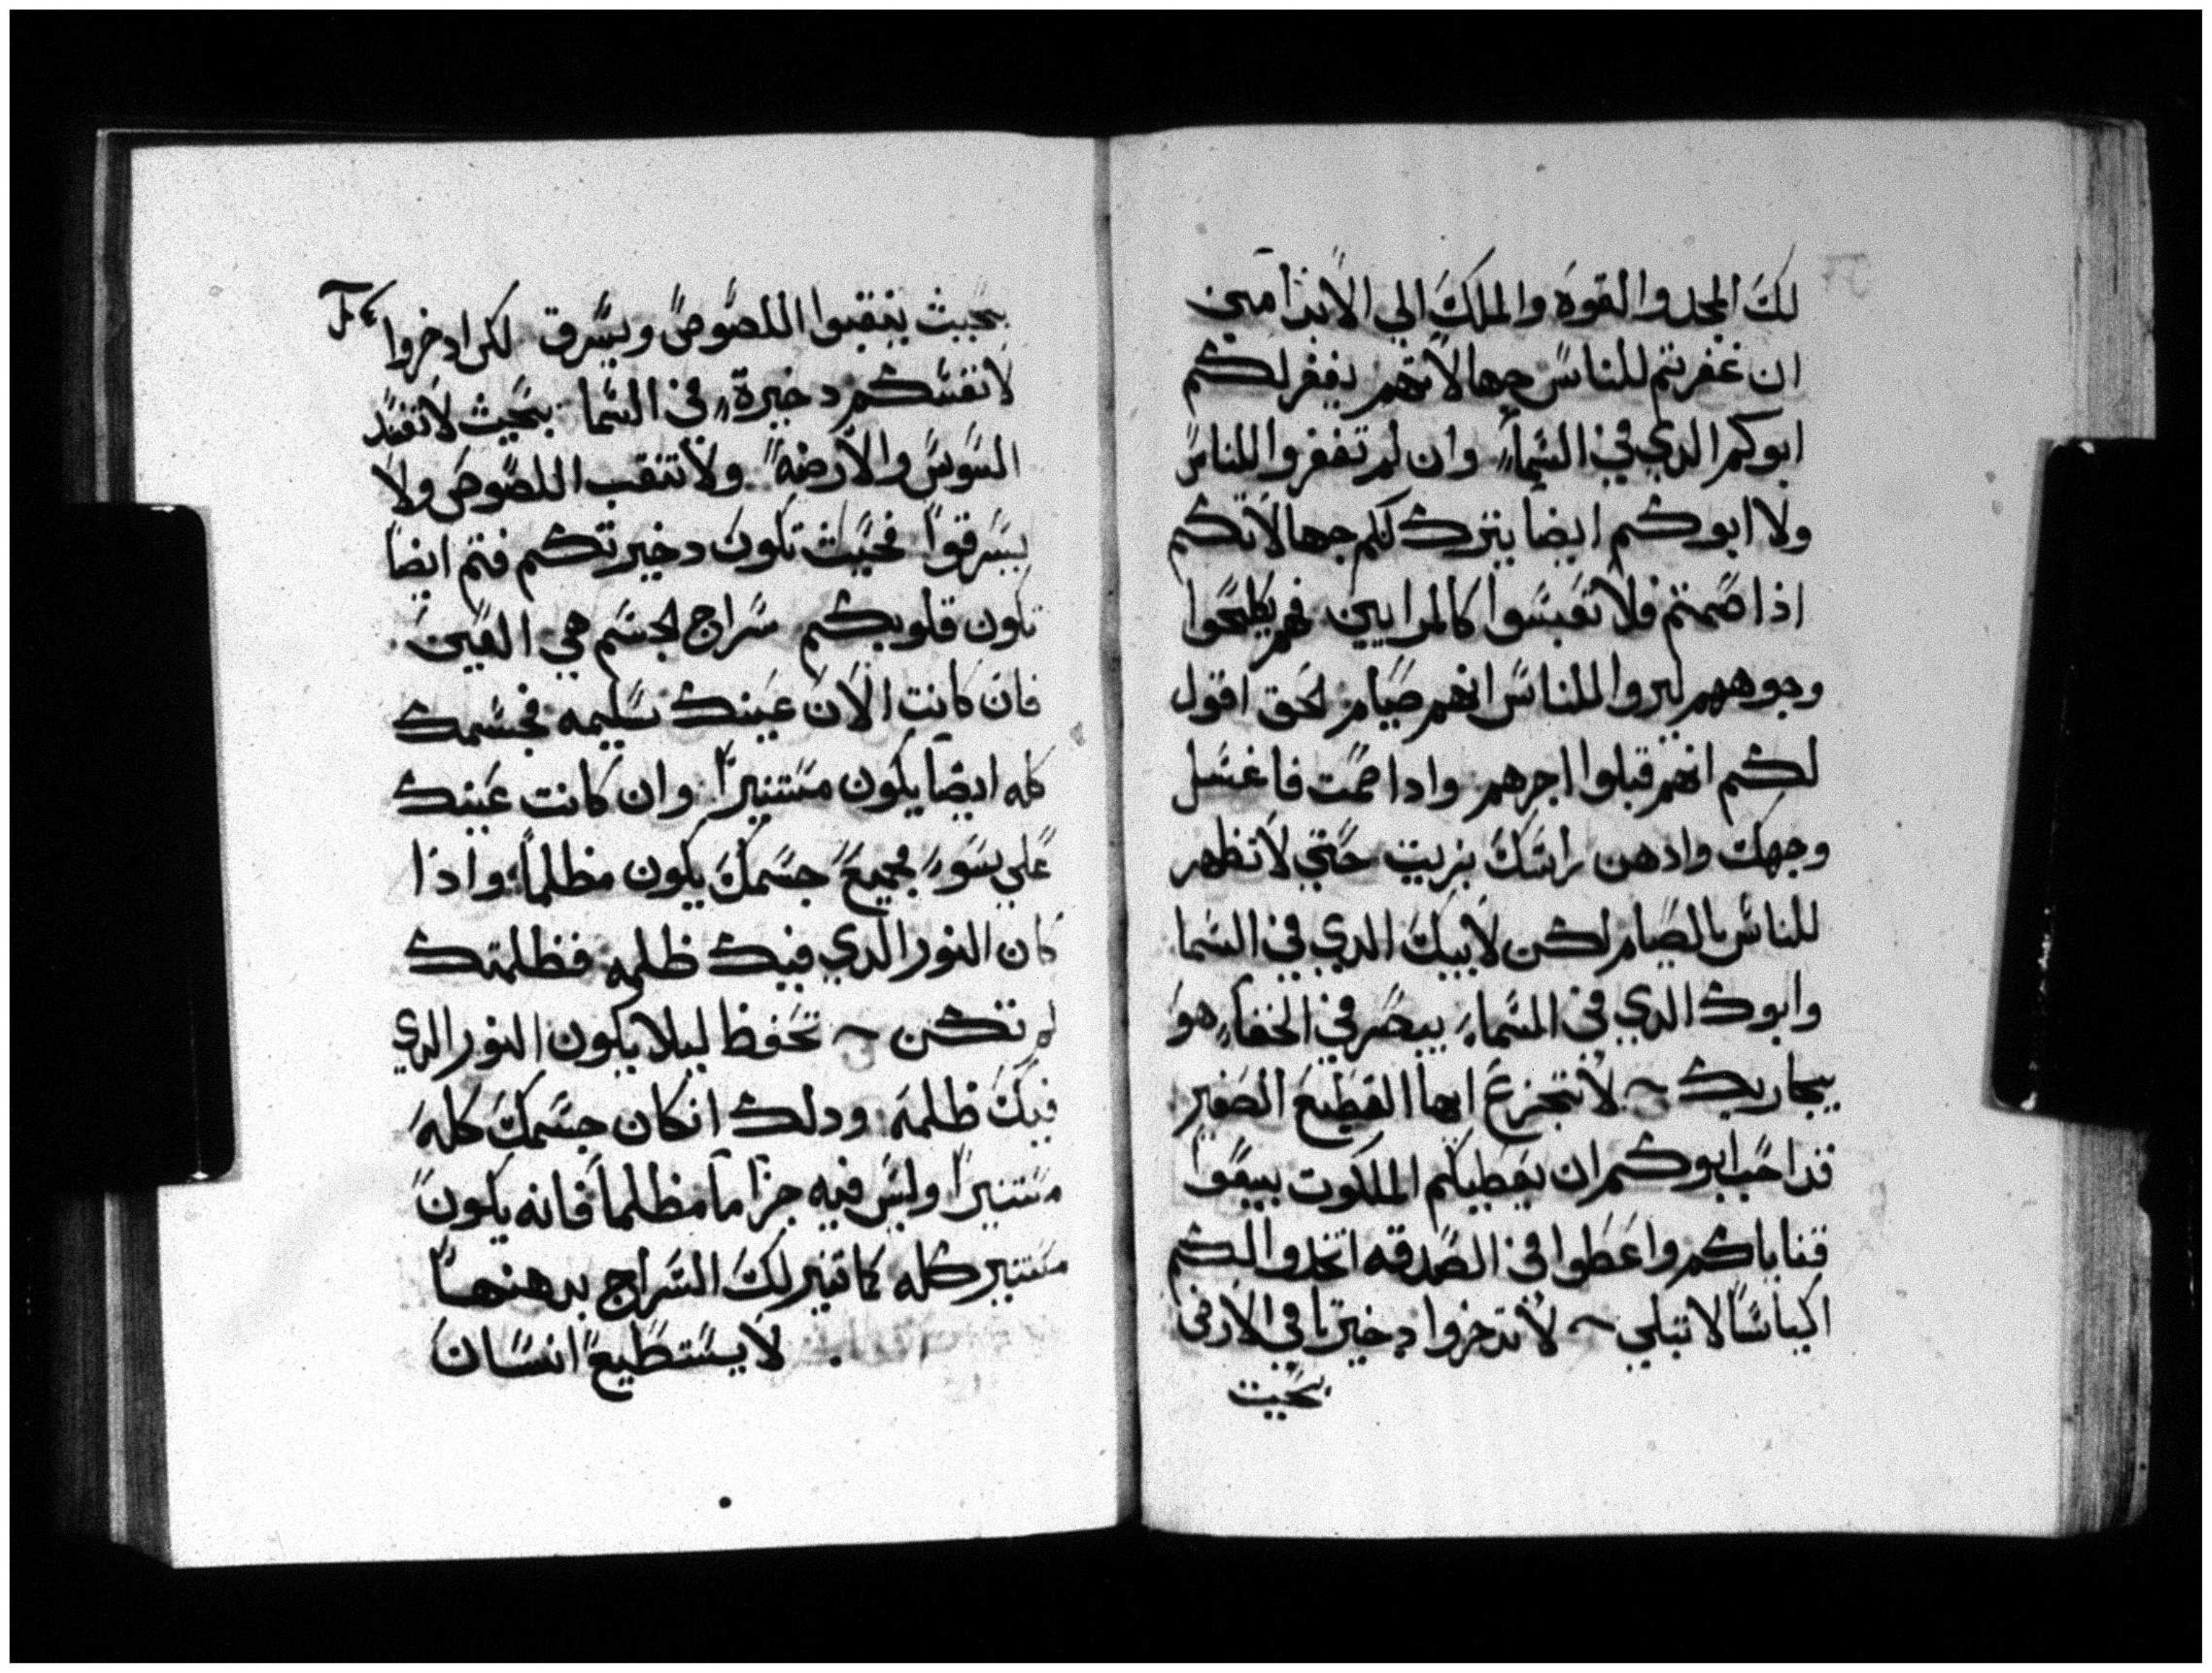 لك المجد والقوة والملك الي الابد امين
ان غفرتم للناس جهالاتهم يغفر لكم
ابوكم الدي في السما وان لم تغفروا للناس
ولا ابوكم ايضا يترك لكم جهالاتكم
اذا صمتم فلا تعبسوا كالمراييين فهم يكلحوا
وجوههم ليروا للناس انهم صيام لحق اقول
لكم انهم قبلوا اجرهم وادا صمت فاغسل
وجهك وادهن راسك بزيت حتي لا تظهر
للناس بالصيام لكن لابيك الدي في السما
وابوك الدي في السماء يبصر في الخفاء هو
يجاريك لا تجزع ايها القطيع الصغير
قد احب ابوكم ان يعطيكم الملكوت بيعوا
قناياكم واعطوا في الصدقه اتخدوا لكم
اكياسا لا تبلي لا تدخروا دخيرتا في الارض
بحيت
بحيث ينقبوا اللصوص ويسرق لكن ادخروا
لانفسكم دخيرة في السما بحيث لا تفسد
السوس والارضة ولا تنقب اللصوص ولا
يسرقوا فحيث تكون دخيرتكم فتم ايضا
تكون قلوبكم سراج الجسم هي العين
فان كانت الان عينك سليمه فجسمك
كله ايضا يكون مستنيرا وان كانت عينك
علي سو فجميع جسمك يكون مظلما واذا
كان النور الدي فيك ظلمه فظلمتك
لم تكن تحفظ ليلا يكون النور الدي
فيك ظلمة ودلك ان كان جسمك كله
مستنيرا وليس فيه جزا ما مظلما فانه يكون
مستنير كله كما تنير لك السراج بدهنها
لا يستطيع انسان